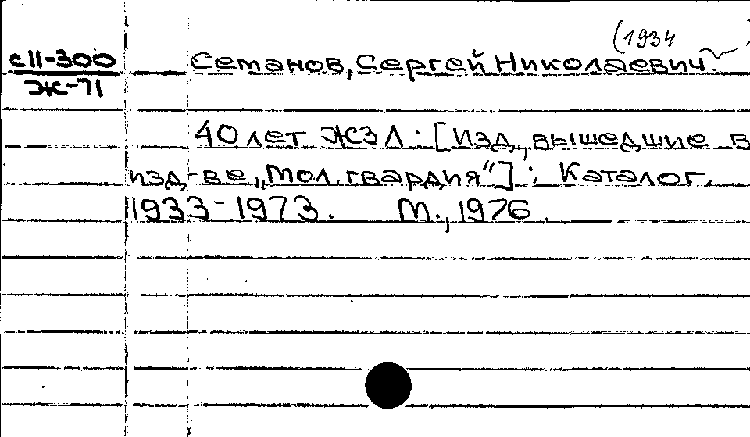 (1934
с11-300 Семанов, Сергей Николаевич.
Ж-71
40 лет ЖЗЛ : [Изд., вышедшие в
изд-ве „Мол. гвардия"] : Каталог.
1933-1973. М., 1976.